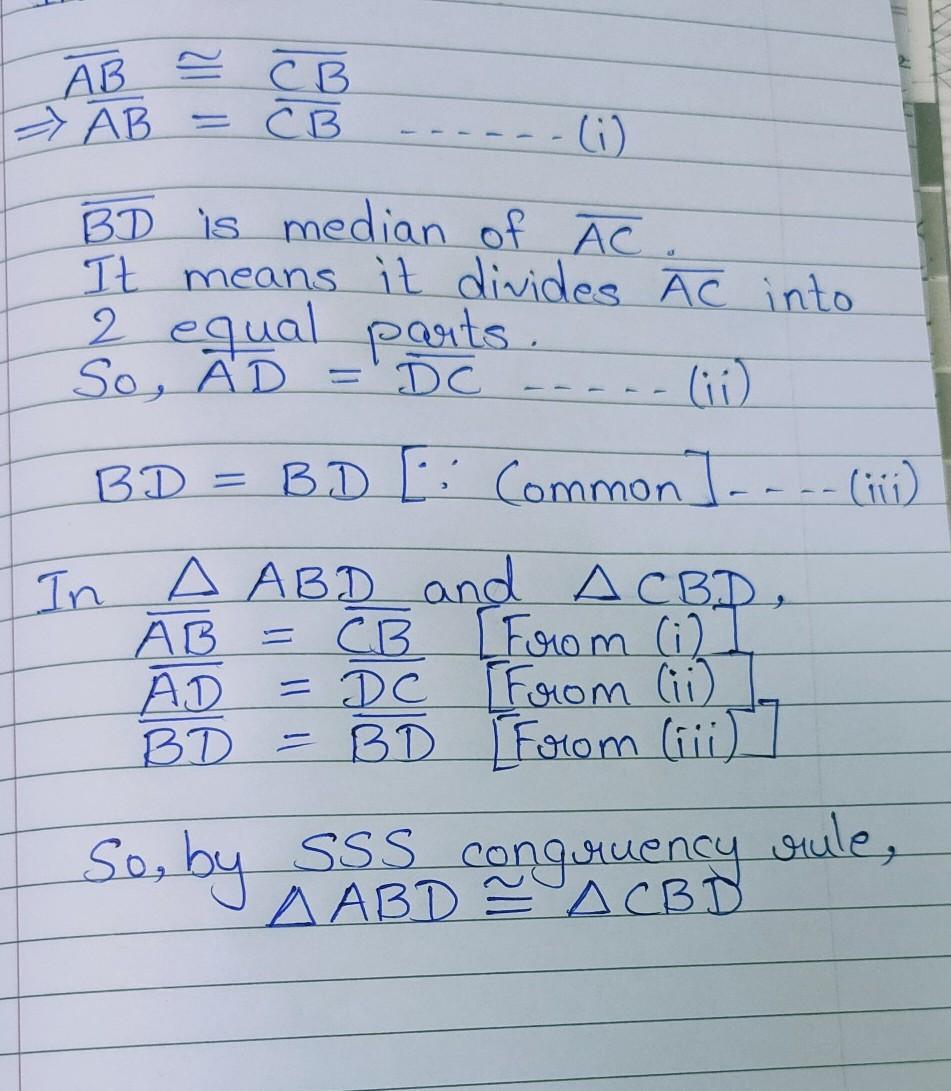 A̅B̅ ≅ C̅B̅
⇒ A̅B̅ = C̅B̅ ------(i)
B̅D̅ is median of A̅C̅.
It means it divides A̅C̅ into
2 equal parts.
So, A̅D̅ = D̅C̅ -----(ii)
BD = BD [∵ Common]----(iii)
In △ ABD and △ CBD,
A̅B̅ = C̅B̅ [From (i)]
A̅D̅ = D̅C̅ [From (ii)]
B̅D̅ = B̅D̅ [From (iii)]
So, by SSS congruency rule,
△ ABD ≅ △ CBD